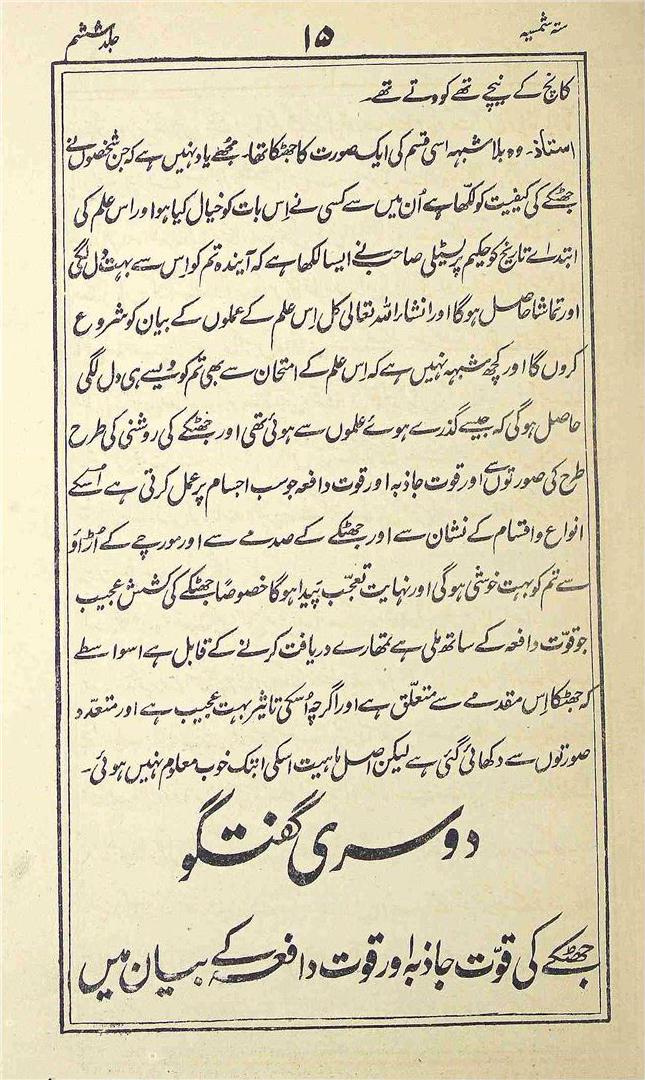 ستہ شمسیہ
۱۵
جلد ششم
کانچ کے نیچے تھے کودتے تھے۔
استاذ۔ وہ بلا شبہہ اسی قسم کی ایک صورت کا جھٹکا تھا۔ مجھے یاد نہیں ہے کہ جن شخصوں نے
جھٹکے کی کیفیت کو لکھا ہے اُن میں سے کسی نے اِس بات کو خیال کیا ہو اور اس علم کی
ابتداے تاریخ کو حکیم پرسیٹلی صاحب نے ایسا لکھا ہے کہ آیندہ تم کو اِس سے بہت دل لگی
اور تماشا حاصل ہوگا اور انشاء اللہ تعالی کل اِس علم کے عملوں کے بیان کو شروع
کروں گا اور کچھ شبہہ نہیں ہے کہ اِس علم کے امتحان سے بھی تم کو ویسے ہی دل لگی
حاصل ہوگی کہ جیسے گذرے ہوے علموں سے ہوئی تھی اور جھٹکے کی روشنی کی طرح
طرح کی صورتوں سے اور قوت جاذبہ اور قوت دافعہ جو سب اجسام پر عمل کرتی ہے اُسکے
انواع و اقسام کے نشان سے اور جھٹکے کے صدمے سے اور مورچے کے اُڑاو
سے تم کو بہت خوشی ہوگی اور نہایت تعجّب پَیدا ہوگا خصوصاً جھٹکے کی کشش عجیب
جو قوّت دافعہ کے ساتھ ملی ہے تمھارے دریافت کرنے کے قابل ہے اسواسطے
کہ جھٹکا اِس مقدمے سے متعلّق ہے اور اگرچہ اُسکی تاثیر بہت عجیب ہے اور متعدّد
صورتوں سے دکھائی گئی ہے لیکن اصل ماہیت اسکی ابتک خوب معلوم نہیں ہوئی۔
دوسری گفتگو
جھٹکے کی قوّت جاذبہ اور قوت دافعہ کے بیان میں